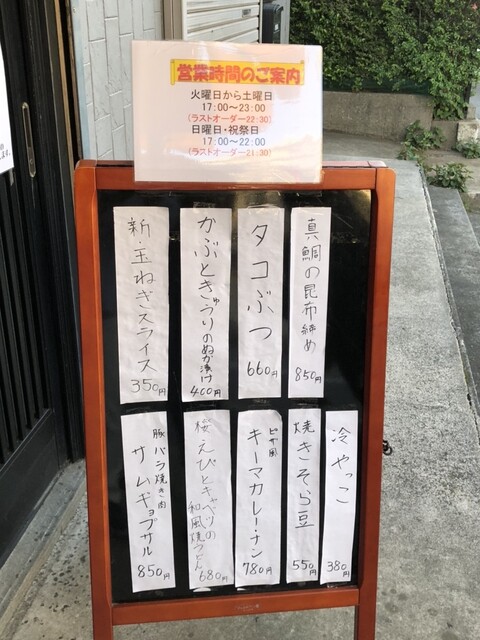 営業時間のご案内
火曜日から土曜日
17:00～23:00
(ラストオーダー22:30)
日曜日・祝祭日
17:00～22:00
(ラストオーダー21:30)
真鯛の昆布締め
850円
タコぶつ
660円
かぶときゅうりのぬか漬け
400円
新・玉ねぎスライス
350円
冷やっこ
380円
焼きそら豆
550円
ピザ風
キーマカレー・ナン
780円
桜えびとキャベツの
和風焼うどん
680円
豚バラ焼き肉
サムギョプサル
850円